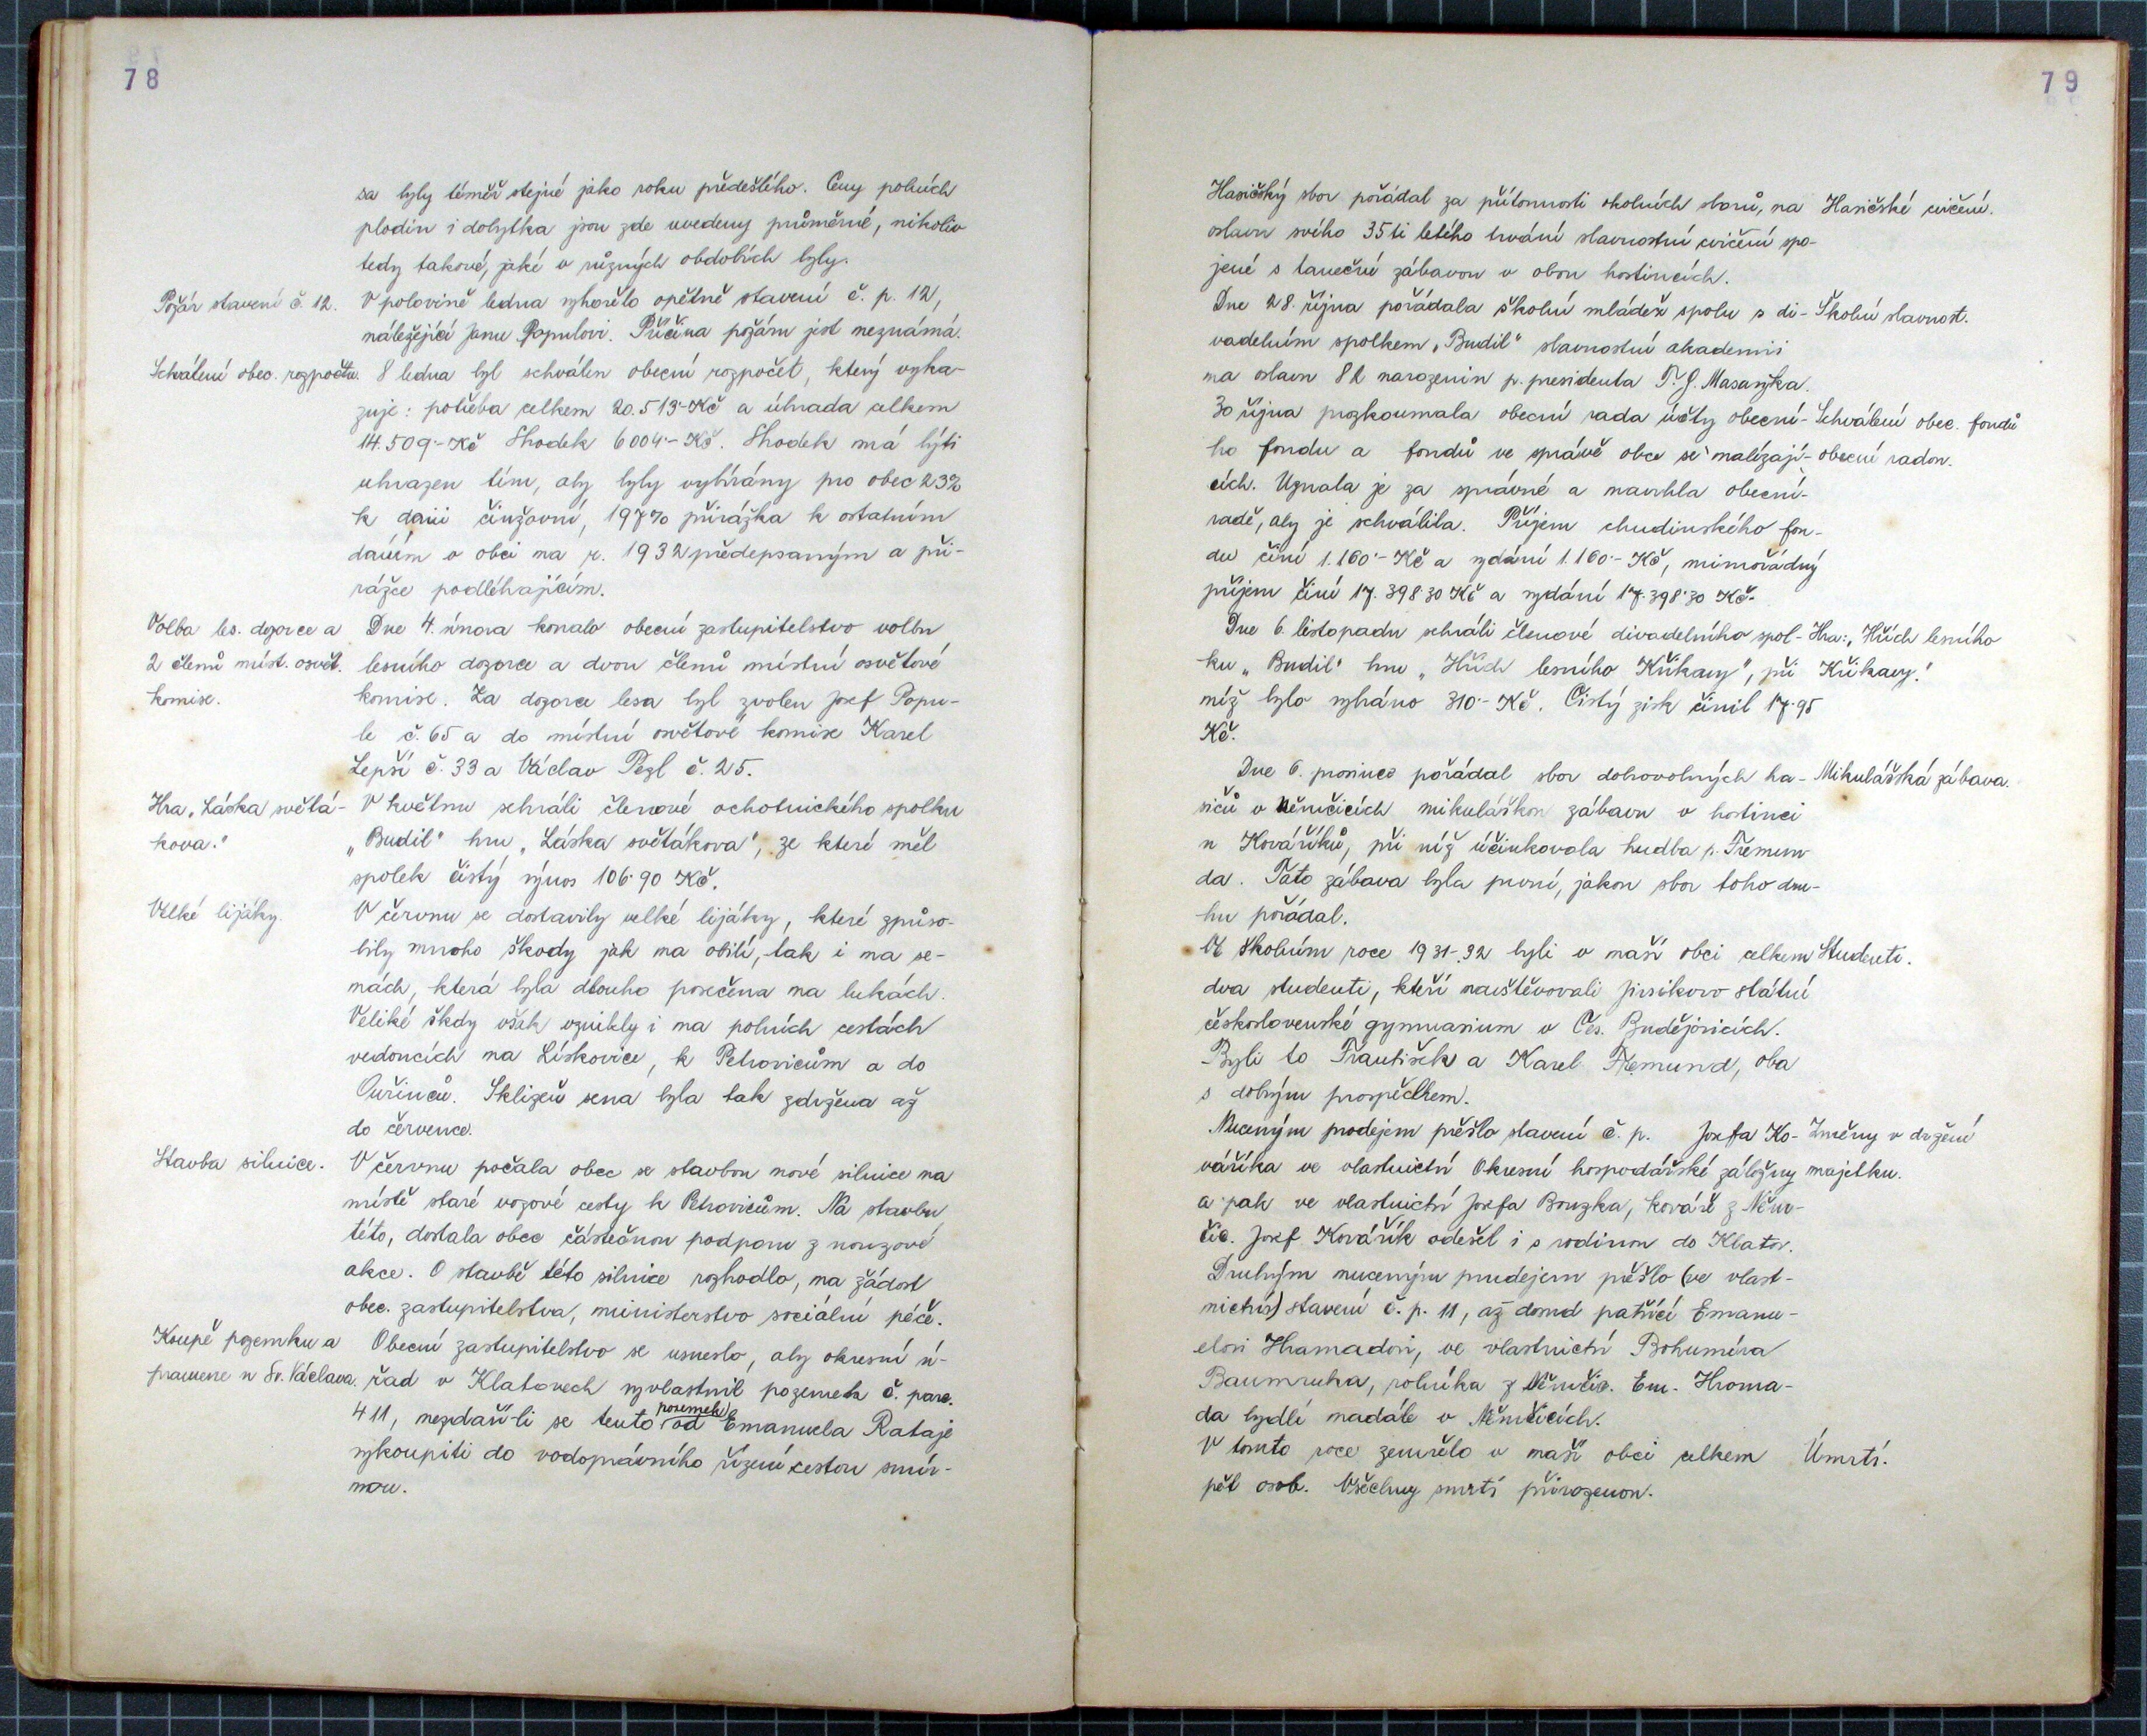 78
sa byly téměř stejné jako roku předešlého. Ceny polních
plodin i dobytka jsou zde uvedeny průměrné, nikoliv
tedy takové, jaké v různých obdobích byly.
Požár stavení č. 12. V polovině ledna vyhořelo opětně stavení č. p. 12,
náležející Janu Populovi. Příčina požáru jest neznámá.
Schválení obec. rozpočtu. 8 ledna byl schválen obecní rozpočet, který vyka-
zuje: potřeba celkem 20.513·-Kč a úhrada celkem
14.509·-Kč Shodek 6004·-Kč. Shodek má býti
uhrazen tím, aby byly vybírány pro obec 23%
k dani činžovní, 197% přirážka k ostatním
daním v obci na r. 1932 předepsaným a při-
rážce podléhajícím.
Volba les. dozorce a Dne 4. února konalo obecní zastupitelstvo volbu
2 členů míst. osvět. lesního dozorce a dvou členů místní osvětové
komise. komise. Za dozorce lesa byl zvolen Josef Popu-
le č. 65 a do místní osvětové komise Karel
Lepší č. 33 a Václav Pegl č. 25.
Hra „Láska světá- V květnu sehráli členové ochotnického spolku
kova." „Budil" hru „Láska světákova", ze které měl
spolek čistý výnos 106·90 Kč.
Velké lijáky. V červnu se dostavily velké lijáky, které způso-
bily mnoho škody jak na obilí, tak i na se-
nách, která byla dlouho posečena na lukách.
Veliké škdy však vznikly i na polních cestách
vedoucích na Lískovice, k Petrovicům a do
Ouřinců. Sklizeň sena byla tak zdržena až
do července.
Stavba silnice. V červnu počala obec se stavbou nové silnice na
místě staré vozové cesty k Petrovicům. Na stavbu
této, dostala obec částečnou podporu z nouzové
akce. O stavbě této silnice rozhodlo, na žádost
obec. zastupitelstva, ministerstvo sociální péče.
Koupě pozemku a Obecní zastupitelstvo se usneslo, aby okresní ú-
pramene u Sv. Václava. řad v Klatovech vyvlastnil pozemek č. parc.
411, nezdaří-li se tento pozemek od Emanuela Rataje
vykoupiti do vodoprávního řízení cestou smír-
nou.
79
Hasičský sbor pořádal za přítomnosti okolních sborů, na Hasičské cvičení.
oslavu svého 35ti letého trvání slavnostní cvičení spo-
jené s taneční zábavou v obou hostincích.
Dne 28. října pořádala školní mládež spolu s di- Školní slavnost.
vadelním spolkem „Budil" slavnostní akademii
na oslavu 82 narozenin p. presidenta T. G. Masaryka.
30 října prozkoumala obecní rada účty obecní- Schválení obec. fondů
ho fondu a fondů ve správě obce se nalézají- obecní radou.
cích. Uznala je za správné a navrhla obecní-
radě, aby je schválila. Příjem chudinského fon-
du činí 1.160·-Kč a vydání 1.160·-Kč, mimořádný
příjem činí 17.398·30 Kč a vydání 17.398·30 Kč-
Dne 6. listopadu sehráli členové divadelního spol- Hra: „Hřích lesního
ku „Budil" hru „Hřích lesního Křikavy", při Křikavy."
níž bylo vybráno 310·-Kč. Čistý zisk činil 17·95
Kč.
Dne 6. prosince pořádal sbor dobrovolných ha- Mikulášská zábava.
sičů v Němčicích mikulášskou zábavu v hostinci
u Kováříků, při níž účinkovala hudba p. Tremun-
da. Tato zábava byla první, jakou sbor toho dru-
hu pořádal.
Ve školním roce 1931-32 byli v naší obci celkem Studenti.
dva studenti, kteří navštěvovali Jirsíkovo státní
československé gymnasium v Čes. Budějovicích.
Byli to František a Karel Tremund, oba
s dobrým prospěchem.
Nuceným prodejem přešlo stavení č. p. Josefa Ko- Změny v držení
váříka ve vlastnictví Okresní hospodářské záložny majetku.
a pak ve vlastnictví Josefa Bouzka, kováře z Něm-
čic. Josef Kovářík odešel i s rodinou do Klatov.
Druhým nuceným prodejem přešlo (ve vlast-
nictví) stavení č. p. 11, až dosud patřící Emanu-
elovi Hramadovi, ve vlastnictví Bohumíra
Baumruka, rolníka z Němčic. Em. Hroma-
da bydlí nadále v Němčicích.
V tomto roce zemřelo v naší obci celkem Úmrtí.
pět osob. Všechny smrtí přirozenou.